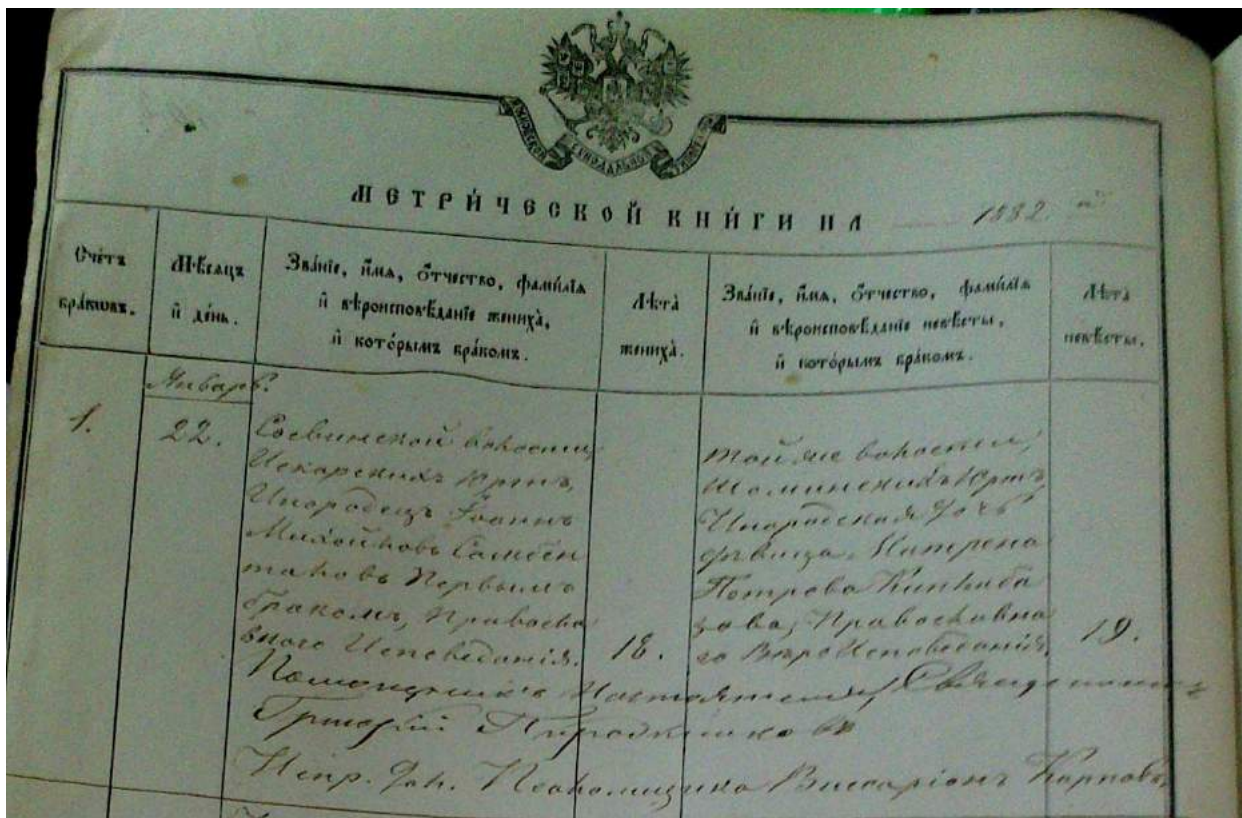 МОСКОВСКОЙ СѴНОДАЛЬНОЙ ТИПОГРАФІИ
МЕТРИ́ЧЕСКОЙ КНИ́ГИ НА 1882
Сче́тъ бра́ковъ.
Мѣ́сяцъ и де́нь.
Зва́нїе, и́мя, о́тчество, фами́лїя и вѣроисповѣ́данїе жениха̀, и кото́рымъ бра́комъ.
Лѣта̀ жениха̀.
Зва́нїе, и́мя, о́тчество, фами́лїя и вѣроисповѣ́данїе невѣ́сты, и кото́рымъ бра́комъ.
Лѣта̀ невѣ́сты.
Январь.
1.
22.
Сосвинской волости,
Искарскихъ Юртъ,
Инородецъ Іоаннъ
Михайловъ Самбин
таловъ Первымъ
бракомъ, Правосла
внаго Исповеданія.
18.
той же волости,
Юртъ
Инородческая Дочь
дѣвица Матрена
Петрова
Православна
го Вѣроисповеданія,
19.
Помощникъ Настоятеля, Священникъ
Григорій
Испр. дол. Псаломщика Виссаріонъ Карповъ.